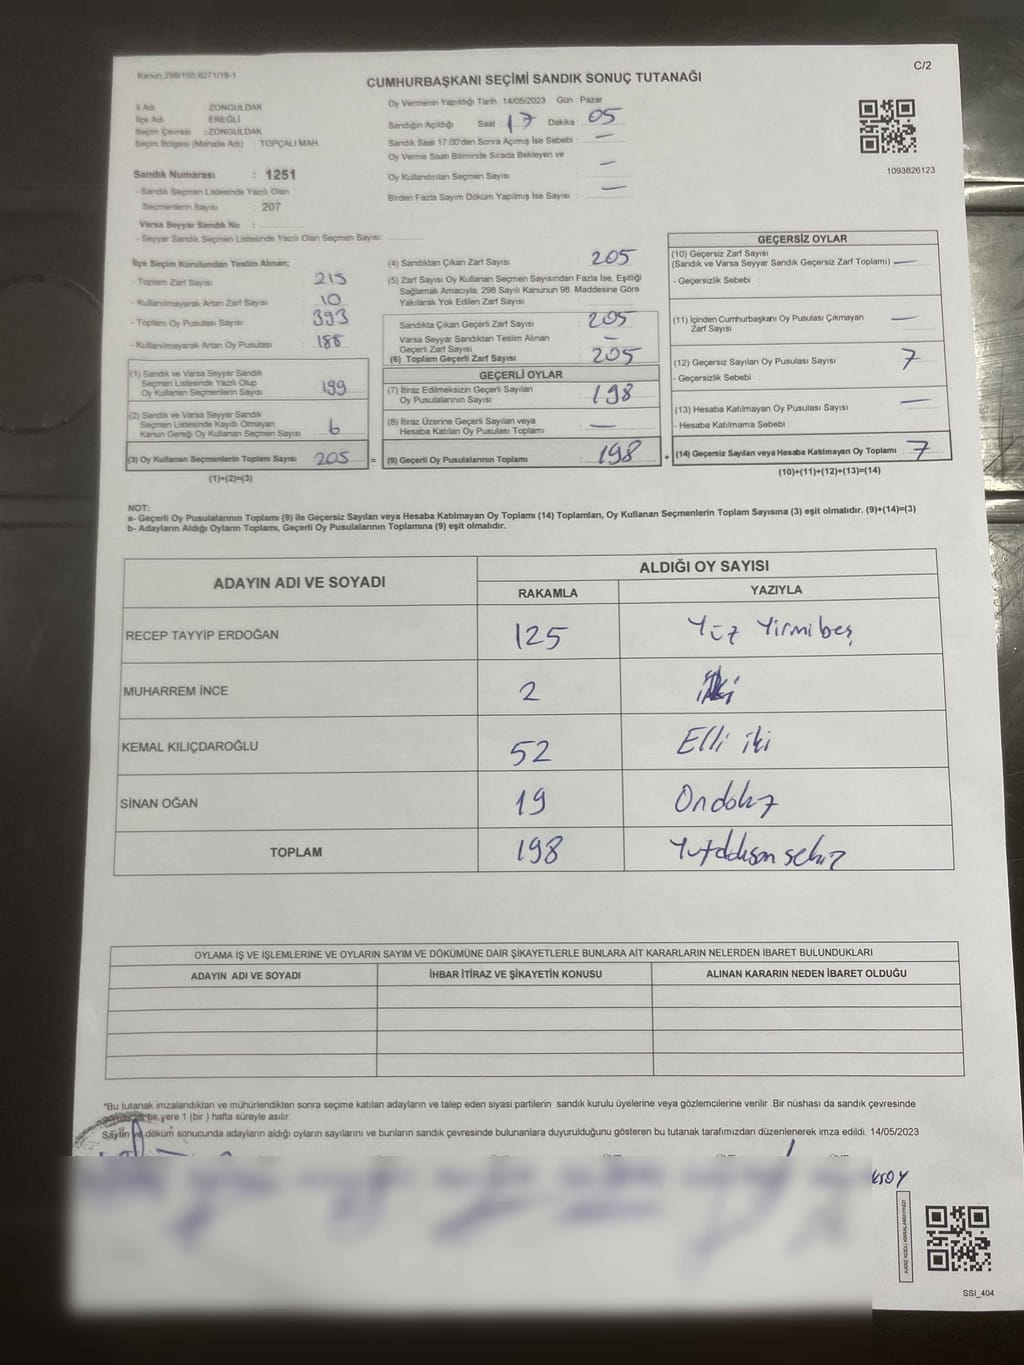 Kanun 298/105,6271/18-1
C/2
CUMHURBAŞKANI SEÇİMİ SANDIK SONUÇ TUTANAĞI
İl Adı ZONGULDAK
İlçe Adı EREĞLİ
Seçim Çevresi : ZONGULDAK
Seçim Bölgesi (Mahalle Adı) : TOPÇALI MAH.
Sandık Numarası : 1251
- Sandık Seçmen Listesinde Yazılı Olan
Seçmenlerin Sayısı : 207
Varsa Seyyar Sandık No :
- Seyyar Sandık Seçmen Listesinde Yazılı Olan Seçmen Sayısı:
Oy Vermenin Yapıldığı Tarih : 14/05/2023 Gün : Pazar
Sandığın Açıldığı Saat 17 Dakika : 05
Sandık Saat 17:00'den Sonra Açmış İse Sebebi : —
Oy Verme Saati Bitiminde Sırada Bekleyen ve
Oy Kullandırılan Seçmen Sayısı : —
Birden Fazla Sayım Döküm Yapılmış İse Sayısı : —
1093826123
İlçe Seçim Kurulundan Teslim Alınan;
- Toplam Zarf Sayısı : 215
- Kullanılmayarak Artan Zarf Sayısı : 10
- Toplam Oy Pusulası Sayısı : 393
- Kullanılmayarak Artan Oy Pusulası : 188
(1) Sandık ve Varsa Seyyar Sandık
Seçmen Listesinde Yazılı Olup
Oy Kullanan Seçmenlerin Sayısı : 199
(2) Sandık ve Varsa Seyyar Sandık
Seçmen Listesinde Kayıtlı Olmayan
Kanun Gereği Oy Kullanan Seçmen Sayısı : 6
(3) Oy Kullanan Seçmenlerin Toplam Sayısı 205 =
(1)+(2)=(3)
(4) Sandıktan Çıkan Zarf Sayısı : 205
(5) Zarf Sayısı Oy Kullanan Seçmen Sayısından Fazla İse, Eşitliği
Sağlamak Amacıyla, 298 Sayılı Kanunun 98. Maddesine Göre
Yakılarak Yok Edilen Zarf Sayısı :
Sandıkta Çıkan Geçerli Zarf Sayısı : 205
Varsa Seyyar Sandıktan Teslim Alınan
Geçerli Zarf Sayısı : —
(6) Toplam Geçerli Zarf Sayısı : 205
GEÇERLİ OYLAR
(7) İtiraz Edilmeksizin Geçerli Sayılan
Oy Pusulalarının Sayısı : 198
(8) İtiraz Üzerine Geçerli Sayılan veya
Hesaba Katılan Oy Pusulası Toplamı : —
(9) Geçerli Oy Pusulalarının Toplamı : 198 +
GEÇERSİZ OYLAR
(10) Geçersiz Zarf Sayısı
(Sandık ve Varsa Seyyar Sandık Geçersiz Zarf Toplamı) : —
- Geçersizlik Sebebi :
(11) İçinden Cumhurbaşkanı Oy Pusulası Çıkmayan
Zarf Sayısı : —
(12) Geçersiz Sayılan Oy Pusulası Sayısı : 7
- Geçersizlik Sebebi :
(13) Hesaba Katılmayan Oy Pusulası Sayısı : —
- Hesaba Katılmama Sebebi :
(14) Geçersiz Sayılan veya Hesaba Katılmayan Oy Toplamı : 7
(10)+(11)+(12)+(13)=(14)
NOT:
a- Geçerli Oy Pusulalarının Toplamı (9) ile Geçersiz Sayılan veya Hesaba Katılmayan Oy Toplamı (14) Toplamları, Oy Kullanan Seçmenlerin Toplam Sayısına (3) eşit olmalıdır. (9)+(14)=(3)
b- Adayların Aldığı Oyların Toplamı, Geçerli Oy Pusulalarının Toplamına (9) eşit olmalıdır.
ADAYIN ADI VE SOYADI ALDIĞI OY SAYISI
RAKAMLA YAZIYLA
RECEP TAYYİP ERDOĞAN 125 Yüz Yirmibeş
MUHARREM İNCE 2 İki
KEMAL KILIÇDAROĞLU 52 Elli iki
SİNAN OĞAN 19 Ondokuz
TOPLAM 198
OYLAMA İŞ VE İŞLEMLERİNE VE OYLARIN SAYIM VE DÖKÜMÜNE DAİR ŞİKAYETLERLE BUNLARA AİT KARARLARIN NELERDEN İBARET BULUNDUKLARI
ADAYIN ADI VE SOYADI İHBAR İTİRAZ VE ŞİKAYETİN KONUSU ALINAN KARARIN NEDEN İBARET OLDUĞU
*Bu tutanak imzalandıktan ve mühürlendikten sonra seçime katılan adayların ve talep eden siyasi partilerin sandık kurulu üyelerine veya gözlemcilerine verilir .Bir nüshası da sandık çevresinde
bir yere 1 (bir ) hafta süreyle asılır.
Sayım ve döküm sonucunda adayların aldığı oyların sayılarını ve bunların sandık çevresinde bulunanlara duyurulduğunu gösteren bu tutanak tarafımızdan düzenlenerek imza edildi. 14/05/2023
SSI_404